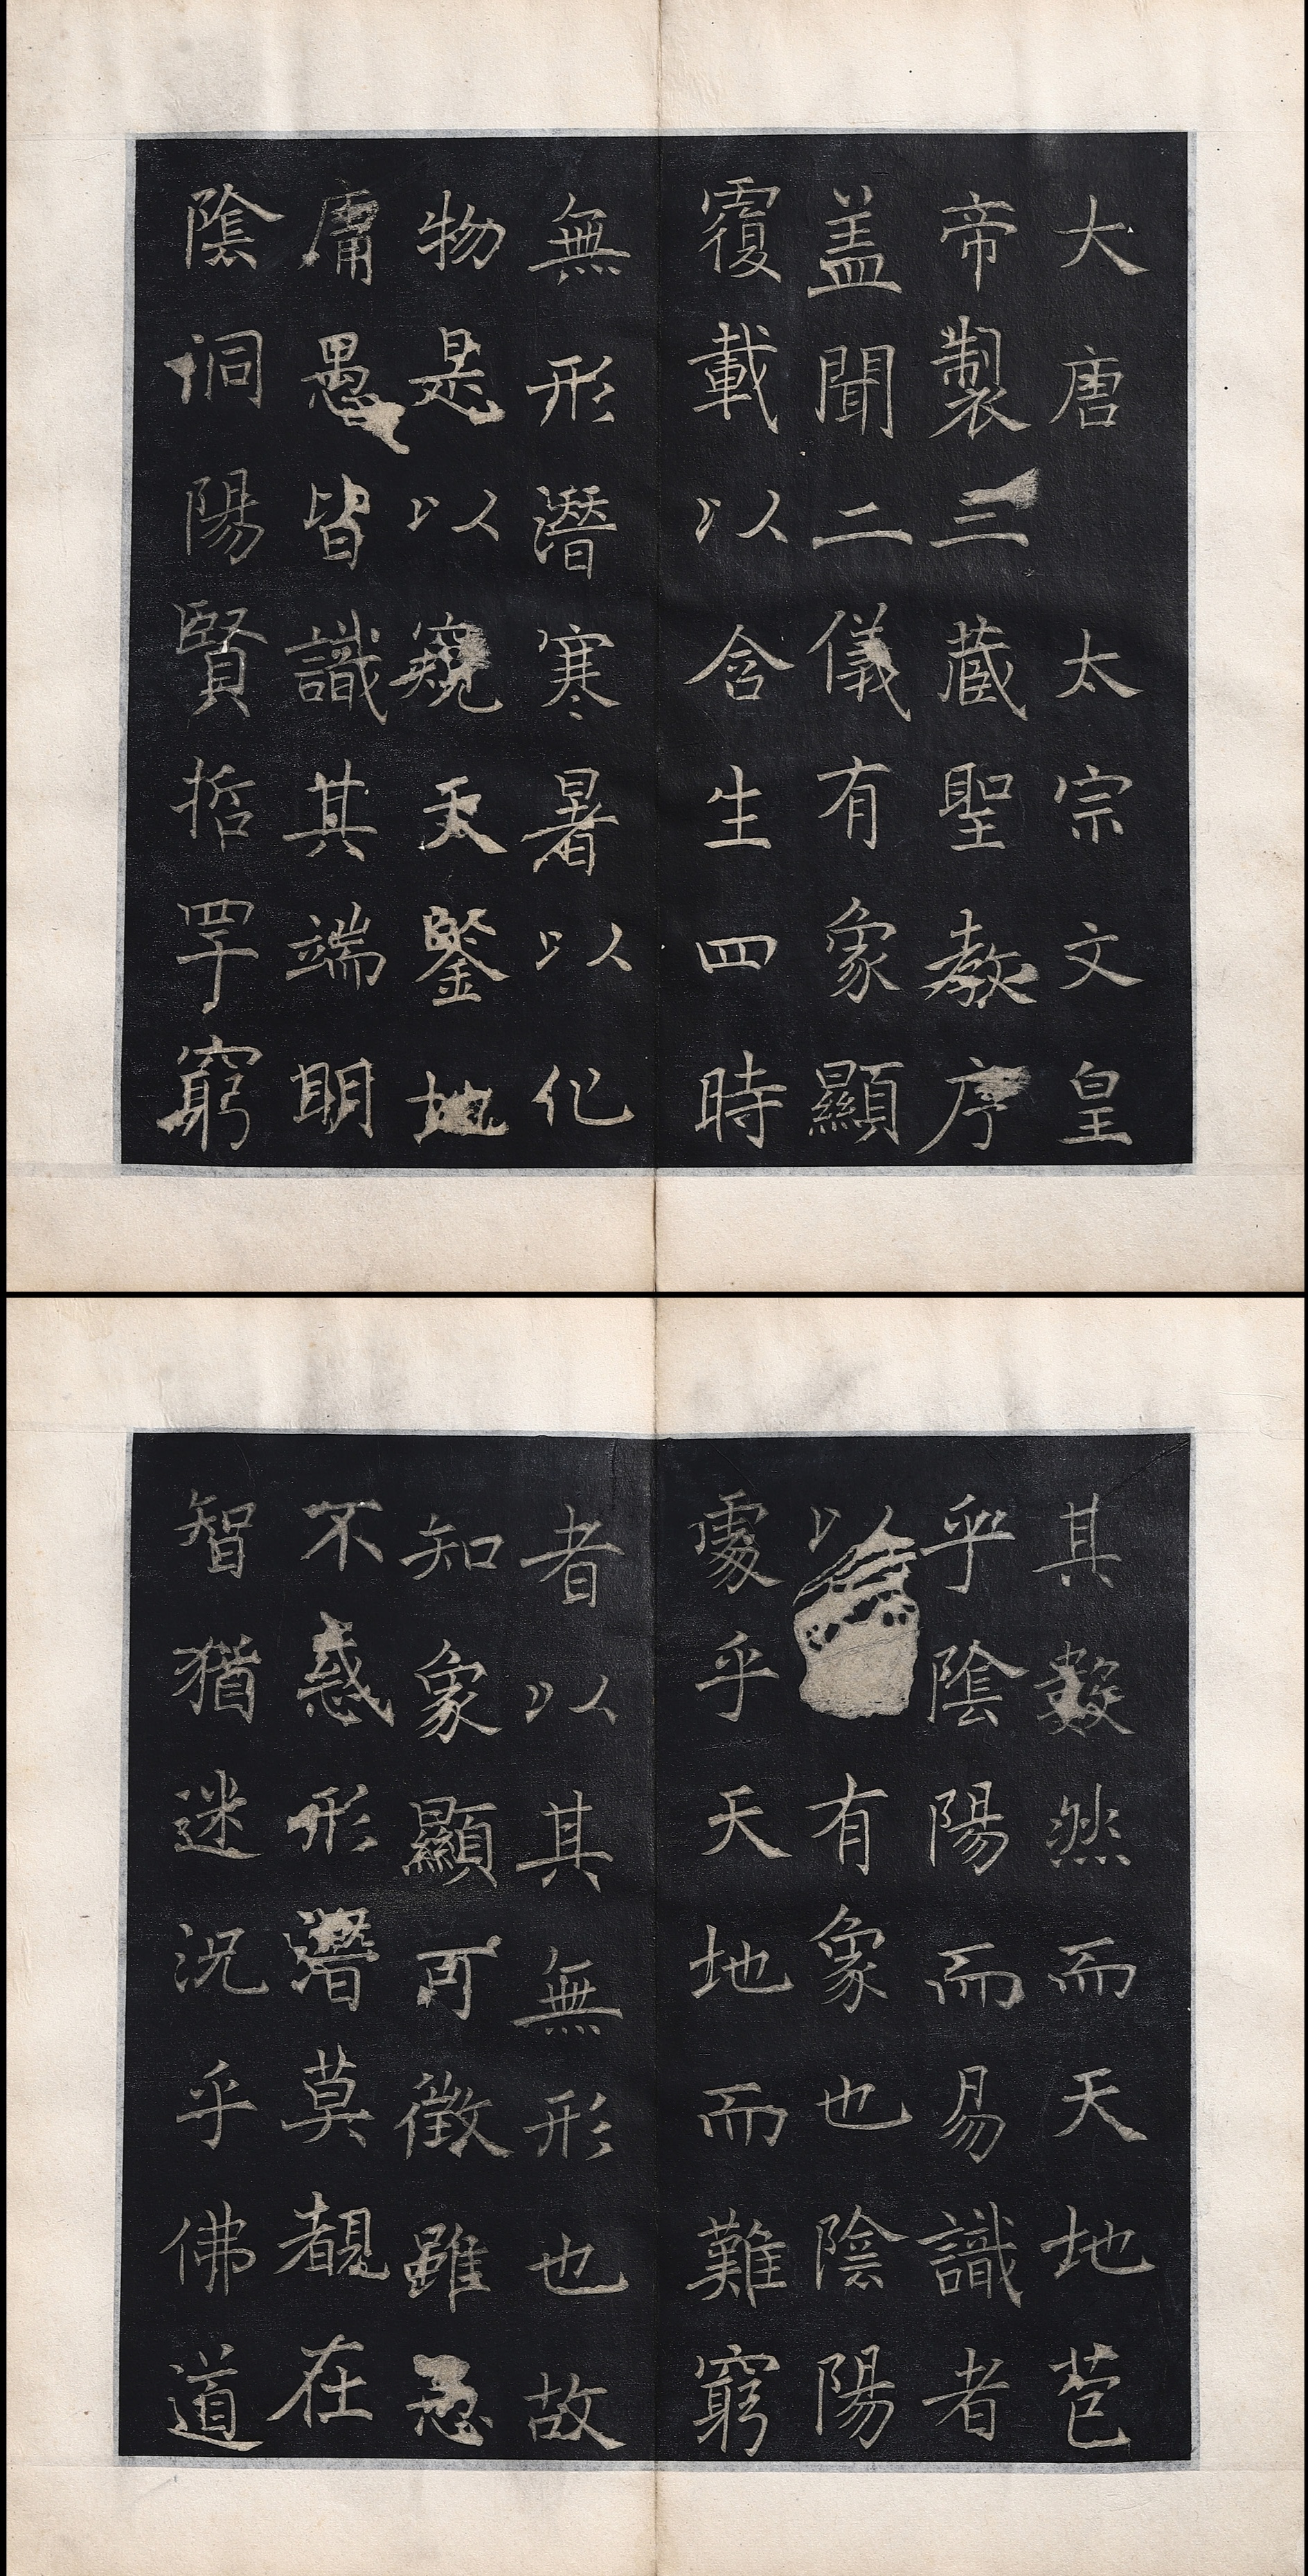 大唐太宗文皇
帝製三藏聖教序
盖聞二儀有象顯
覆載以含生四時
無形潛寒暑以化
物是以窺天鑒地
庸愚皆識其端明
陰洞陽賢哲罕窮
其數然而天地苞
乎陰陽而易識者
以有象也陰陽
處乎天地而難窮
者以其無形也故
知象顯可徵雖愚
不惑形潛莫覩在
智猶迷況乎佛道